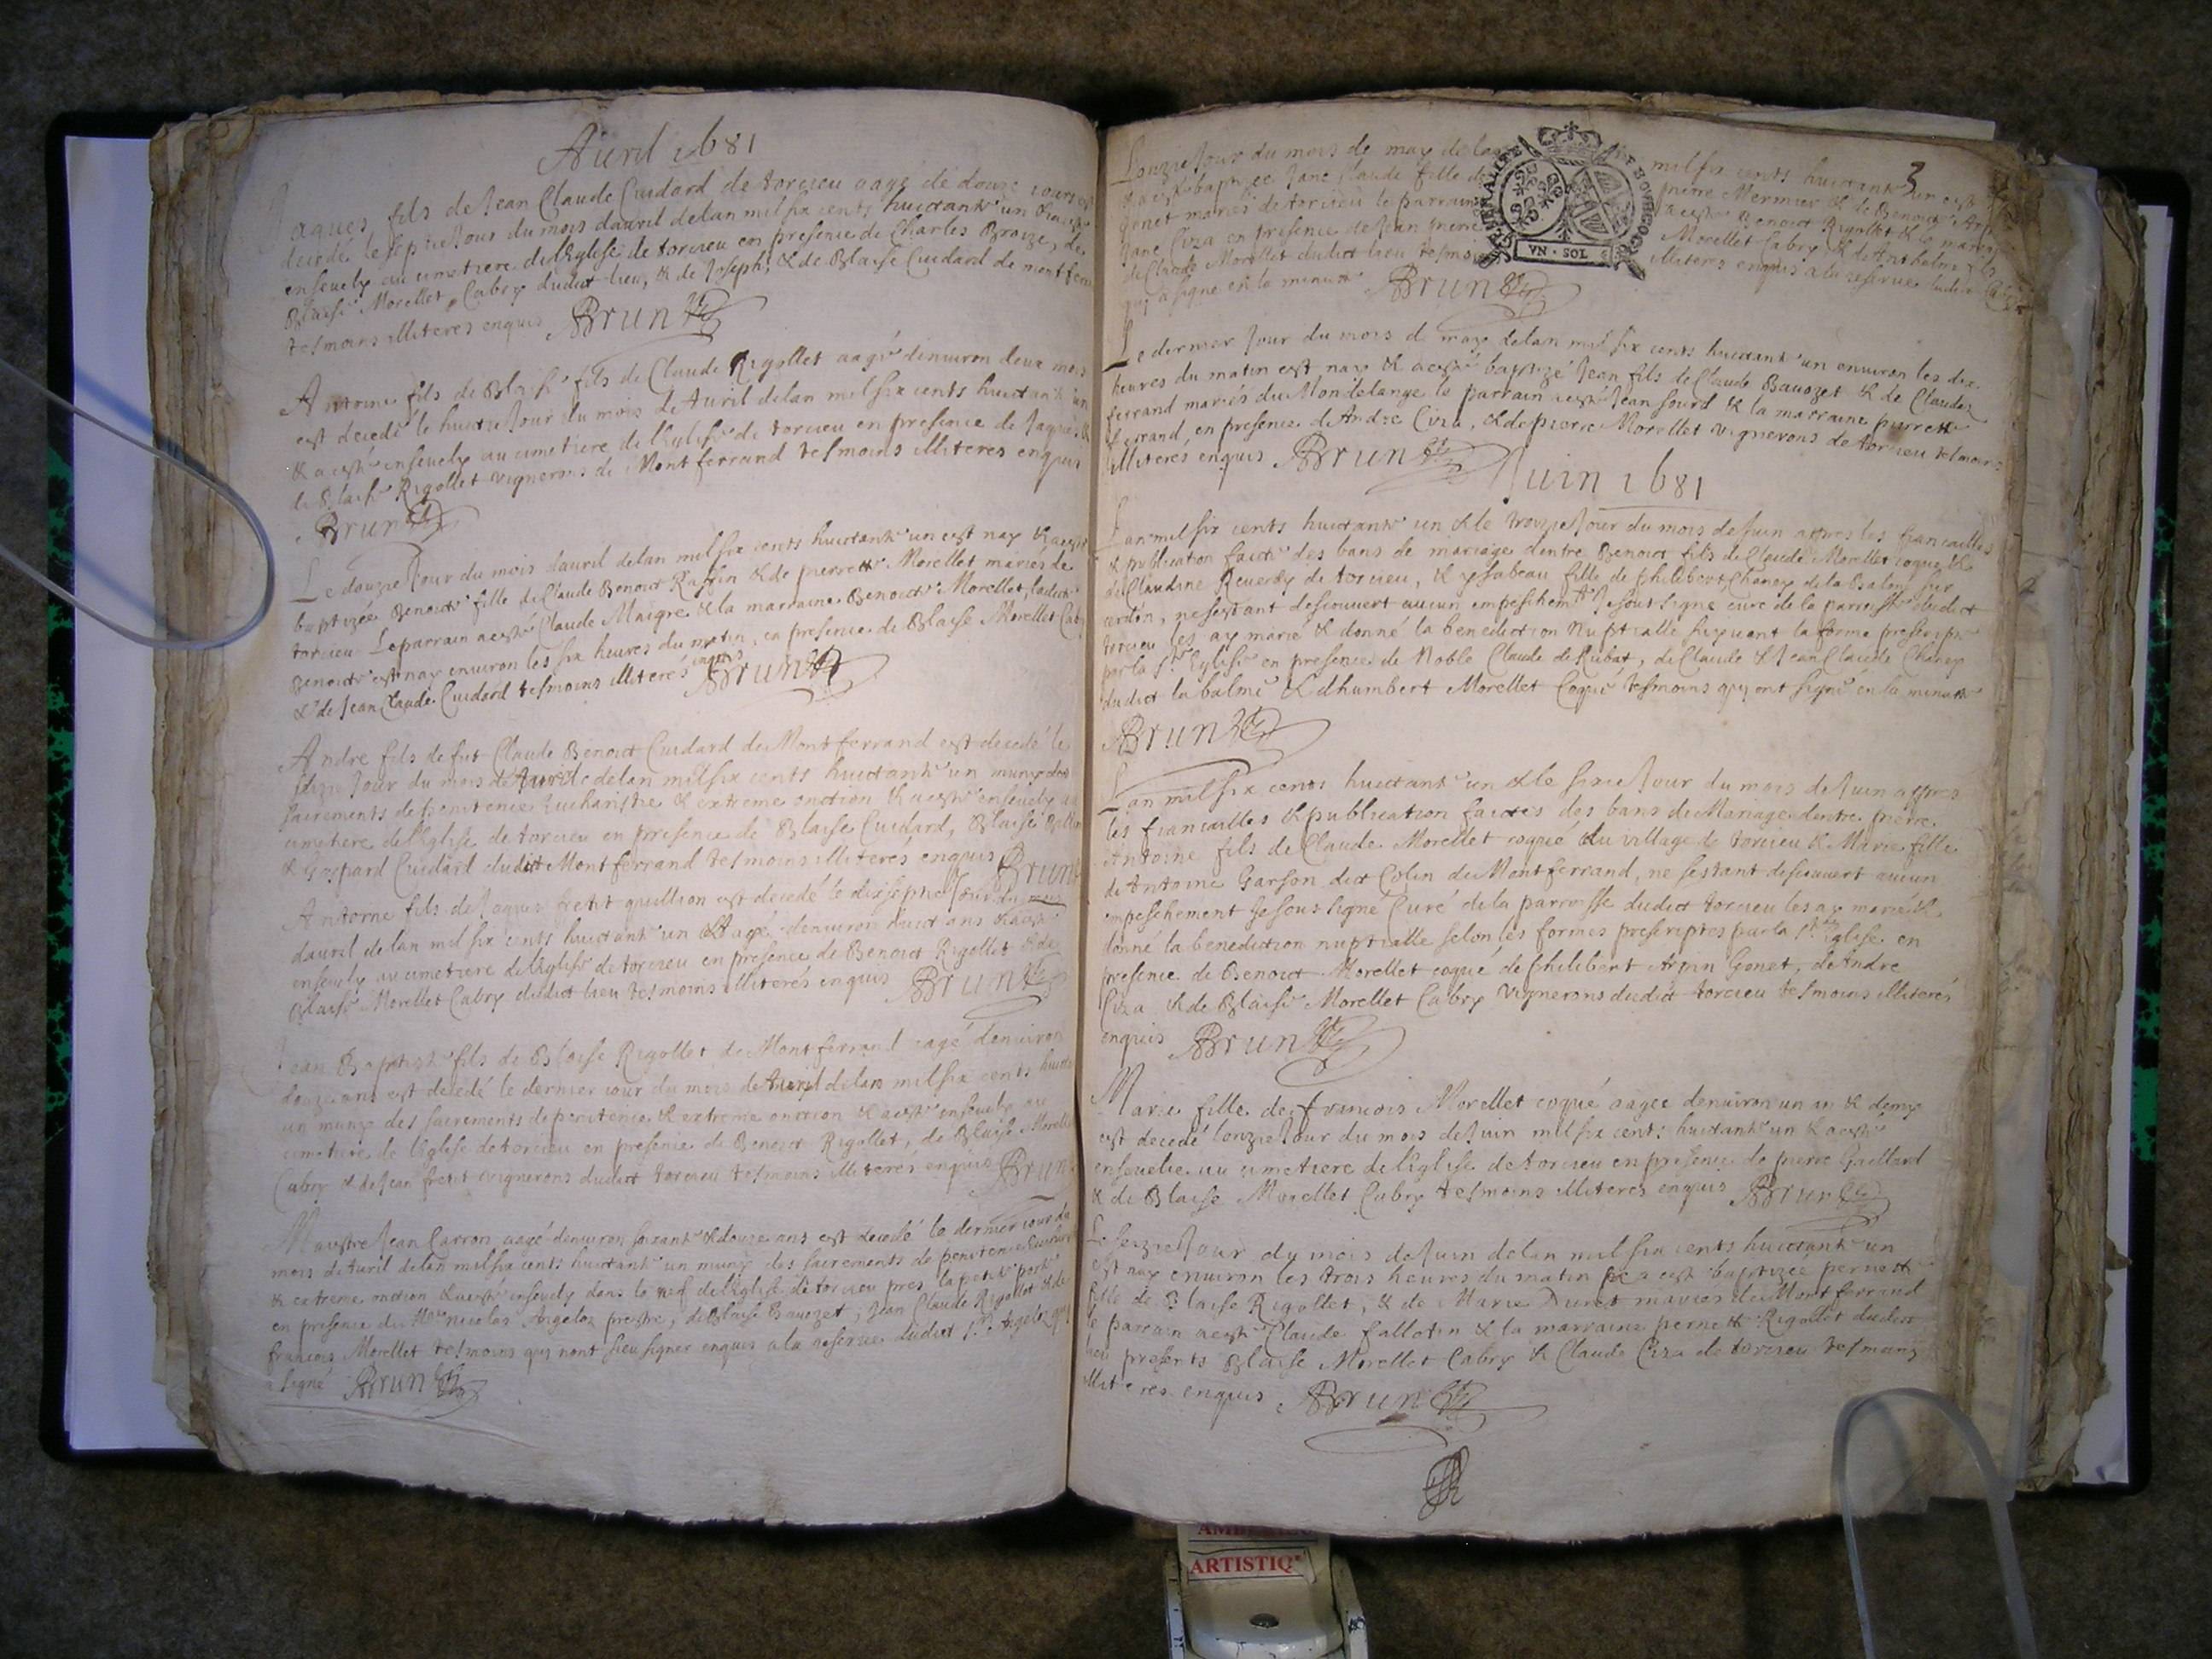 Auril 1681
Jaques fils de Jean Claude Cuidard de torcieu aagé de douze iours est
decedé le septie Jour du mois dauril delan mil six cents huictante un & a esté
enseuely au cimetiere de leglise de torcieu en presence de Charles Broize, de
Blaise Morellet Cabry dudict lieu, & de Joseph, & de Blaise Cuidard de montferrand
tesmoins illiteres enquis Brun
Antoine fils de Blaise fils de Claude Rigollet aagé denuiron deux mois
est decedé le huictie Jour du mois de Auril delan mil six cents huictante un
& a esté enseuely au cimetiere de leglise de torcieu en presence de Jaques &
de Blaise Rigollet vignerons de Montferrand tesmoins illiteres enquis
Brun
Le douzie Jour du mois dauril delan mil six cents huictante un est nay & a esté
baptizée Benoicte fille de Claude Benoict Raffin & de pierrette Morellet mariés de
torcieu Le parrain a esté Claude Maigre & la marraine Benoicte Morellet, ladicte
Benoicte est nay enuiron les six heures du matin, en presence de Blaise Morellet Cabry
& de Jean Claude Cuidard tesmoins illiterés enquis Brun
Andre fils de fut Claude Benoict Cuidard de Montferrand est decedé le
Jour du mois de Auril delan mil six cents huictante un muny des
sacrements de penitence Eucharistie & extreme onction & a esté enseuely au
cimetiere de leglise de torcieu en presence de Blaise Cuidard, Blaise
& Gaspard Cuidard dudict Montferrand tesmoins illiterés enquis Brun
Antoine fils de Jaques fretit quillion est decedé le dixseptie Jour du mois
dauril delan mil six cents huictante un aagé denuiron huict ans & a esté
enseuely au cimetiere de leglise de torcieu en presence de Benoict Rigollet & de
Blaise Morellet Cabry dudict lieu tesmoins illiterés enquis Brun
Jean Baptiste fils de Blaise Rigollet de Montferrand aagé denuiron
douze ans est decedé le dernier iour du mois de Auril delan mil six cents huictante
un muny des sacrements de penitence & extreme onction & a esté enseuely au
cimetiere de leglise de torcieu en presence de Benoict Rigollet, de Blaise Morellet
Cabry & de Jean fretit vignerons dudict torcieu tesmoins illiterés enquis Brun
Maistre Jean Carron aagé denuiron soixante & douze ans est decedé le dernier iour du
mois de Auril delan mil six cents huictante un muny des sacrements de penitence Eucharistie
& extreme onction & a esté enseuely dans le nef de leglise de torcieu pres la petite porte
en presence de nicolas Argeloz prestre, de Blaise Bauozet, Jean Claude Rigollet & de
francois Morellet tesmoins qui nont sceu signer enquis a la reserue dudict Sr Argeloz qui
a signé Brun
3
GENERALITE DE BOVRGOGNE
VN · SOL
Lonzie Jour du mois de may delan mil six cents huictante un est
baptizee Jane Claude fille de pierre Mermier & de Benoicte
Gonet mariés de torcieu le parrain a esté Benoict Rigollet & la marraine
Jane Ciza en presence de Jean Morellet Cabry, & de Anthelme fils
de Claude Morellet dudict lieu tesmoins illiteres enquis a la reserue dudict
qui a signé en la minute Brun
Le dernier Jour du mois de may delan mil six cents huictante un enuiron les dix
heures du matin est nay & a esté baptizé Jean fils de Claude Bauozet & de Claudaz
ferrand mariés du Mondelange le parrain a esté Jean sourd & la marraine pierrette
ferrand, en presence de André Ciza, & de pierre Morellet vignerons de torcieu tesmoins
illiterés enquis Brun
Juin 1681
Lan mil six cents huictante un & le troizie Jour du mois de Juin apres les fiancailles
& publication faicte des bans de mariage dentre Benoict fils de Claude Morellet coque, &
de Claudine Reuerdy de torcieu, & ysabeau fille de philibert Chaney de la Balme sur
cerdon, ne sestant descouuert aucun empeschemt Je soussigné curé de la parroisse dudict
torcieu les ay marié & donné la benediction nuptialle suiyuant la forme prescripte
par la Ste Eglise en presence de Noble Claude de Rubat, de Claude & Jean Claude Chaney
dudict la balme & dhumbert Morellet Coqué tesmoins qui ont signé en la minute
Brun
Lan mil six cents huictante un & le sixie Jour du mois de Juin appres
les fiancailles & publication faictes des bans de Mariage dentre pierre
Antoine fils de Claude Morellet coqué du village de torcieu & Marie fille
de Antoine Garson dict Colin de Montferrand, ne sestant descouuert aucun
empeschement Je soussigné Curé de la parroisse dudict torcieu les ay marié &
donné la benediction nuptialle selon les formes prescriptes par la Ste Eglise en
presence de Benoict Morellet coqué de philibert Arpin Gonet, de Andre
Ciza & de Blaise Morellet Cabry vignerons dudict torcieu tesmoins illiterés
enquis Brun
Marie fille de francois Morellet coqué aagee denuiron un an & demy
est decedé lonzie Jour du mois de Juin mil six cents huictante un & a esté
enseuelie au cimetiere de leglise de torcieu en presence de pierre Gaillard
& de Blaise Morellet Cabry tesmoins illiteres enquis Brun
Le seizie Jour du mois de Juin delan mil six cents huictante un
est nay enuiron les trois heures du matin & a esté baptizee pernette
fille de Blaise Rigollet, & de Marie Duret mariés de Montferrand
le parrain a esté Claude fallotin & la marraine pernette Rigollet dudict
lieu presents Blaise Morellet Cabry & Claude Ciza de torcieu tesmoins
illiteres enquis Brun
ARTISTIQ'